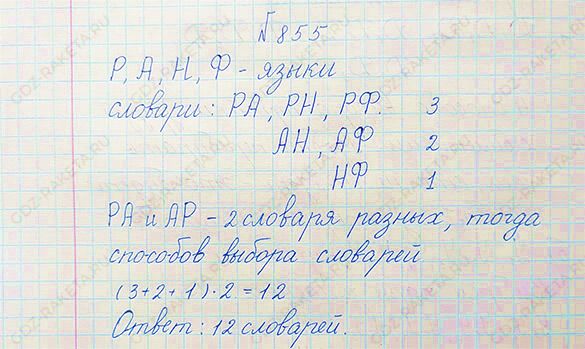 № 855
Р, А, Н, Ф - языки
словари: РА, РН, РФ. 3
АН, АФ 2
НФ 1
РА и АР - 2 словаря разных, тогда
способов выбора словарей
(3+2+1)·2=12
Ответ: 12 словарей.